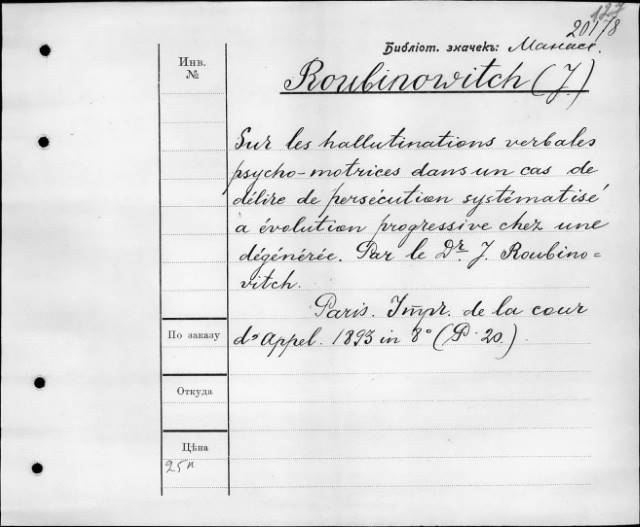 122
201/8
Библіот. значекъ: Манасс.
Roubinowitch (J.)
Инв.
№
Sur les hallutinations verbales
psycho-motrices dans un cas de
délire de persécution systématisé
a évolution progressive chez une
dégénérée. Par le Dr. J. Roubino=
vitch.
Paris. Impr. de la cour
d'Appel. 1893 in 8° (P. 20.)
По заказу
Откуда
Цѣна
25 к